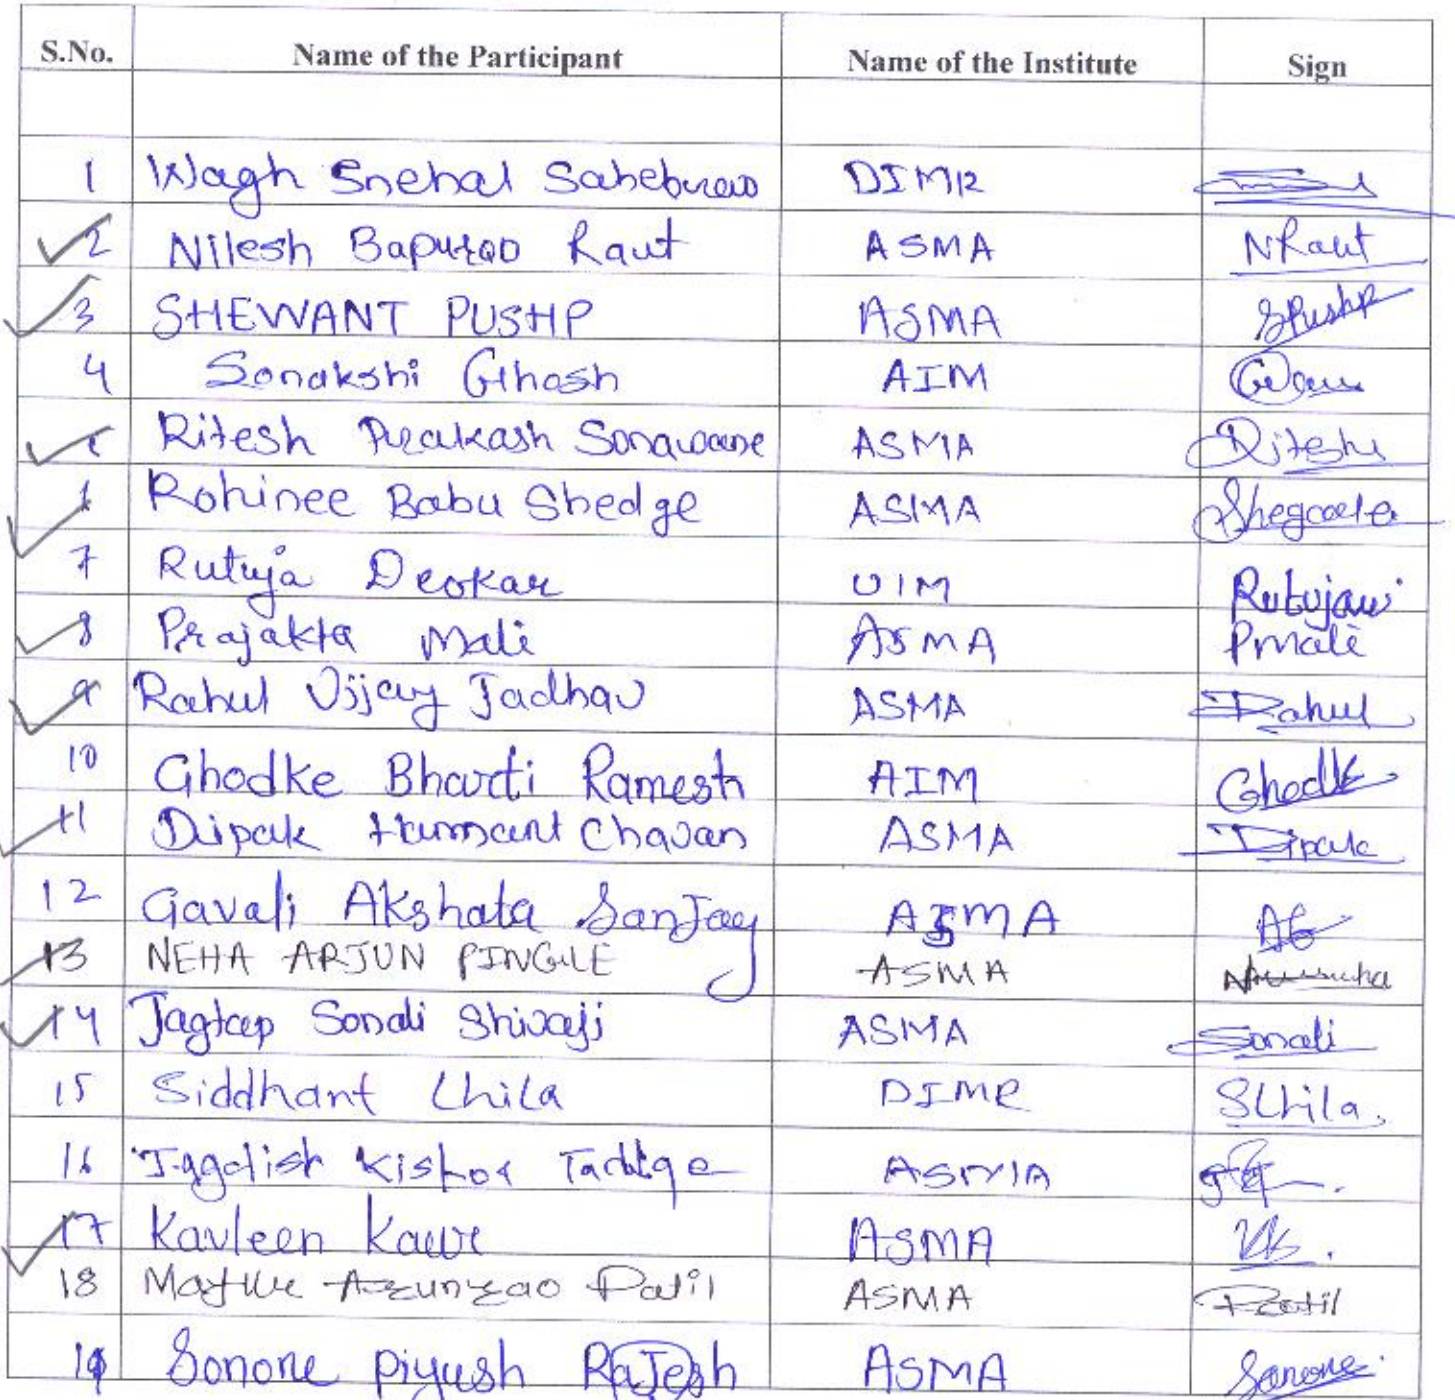 S.No. Name of the Participant Name of the Institute Sign
1 Wagh Snehal Sahebrao DIMR
2 Nilesh Bapurao Raut ASMA NRaut
3 SHEWANT PUSHP ASMA SPushp
4 Sonakshi Ghosh AIM
Ritesh Prakash Sonawane ASMA Ritesh
Rohinee Babu Shedge ASMA
7 Rutuja Deokar UIM
8 Prajakta Mali ASMA Pmali
9 Rahul Vijay Jadhav ASMA Rahul
10 Ghodke Bharti Ramesh AIM Ghodke
11 Dipak Hanmant Chavan ASMA Dipak
12 Gavali Akshata Sanjay ASMA AG
13 NEHA ARJUN PINGLE ASMA
14 Jagtap Sonali Shivaji ASMA Sonali
15 Siddhant Lhila DIMR SLhila.
16 Jagdish Kishor ASMA
17 Kavleen Kaur ASMA
18 Arunrao Patil ASMA Patil
19 Sonone Piyush Rajesh ASMA Sonone